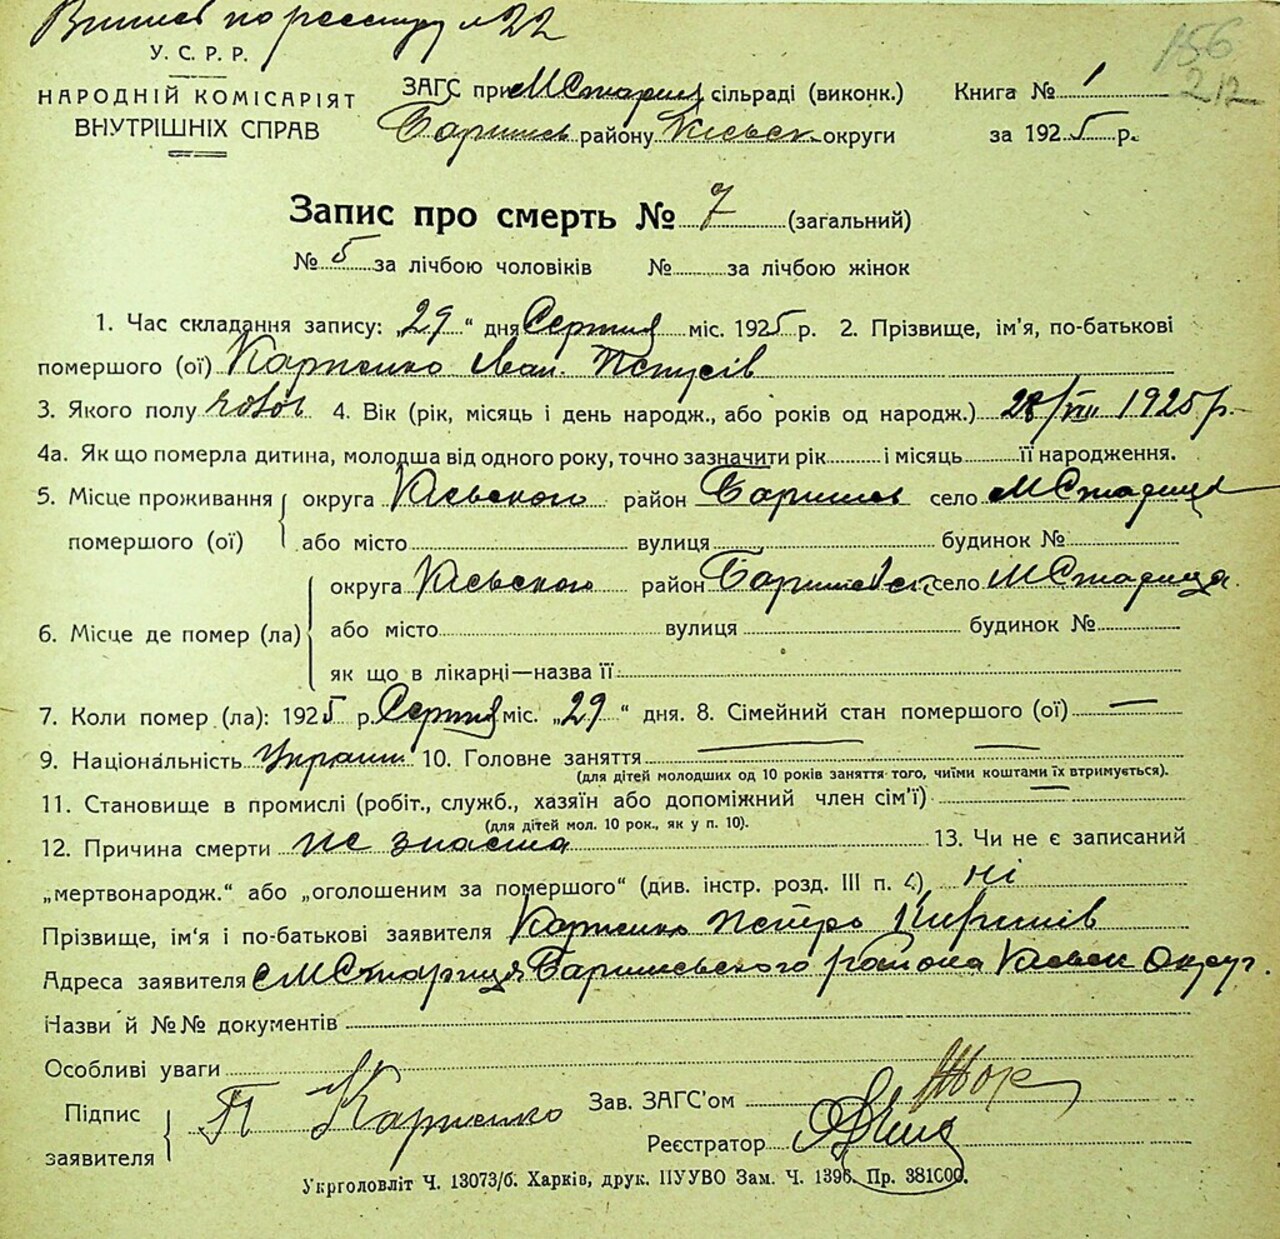 по реестру №22
156
212
У. С. Р. Р.
НАРОДНІЙ КОМІСАРІЯТ
ВНУТРІШНІХ СПРАВ
ЗАГС при МСтариц сільраді (виконк.)
Баришев району Київськ округи
Книга № 1
за 1925 р.
Запис про смерть № 7 (загальний)
№ 5 за лічбою чоловіків № за лічбою жінок
1. Час складання запису: „29“ дня Серпня міс. 1925 р. 2. Прізвище, ім'я, по-батькові
помершого (ої) Карпенко Іван Петрусів
3. Якого полу чолов 4. Вік (рік, місяць і день народж., або років од народж.) 28/VIII 1925 р.
4а. Як що померла дитина, молодша від одного року, точно зазначити рік і місяць її народження.
5. Місце проживання помершого (ої) округа Київського район Баришев село МСтариця
або місто вулиця будинок №
6. Місце де помер (ла) округа Київського район Баришевск село МСтариця
або місто вулиця будинок №
як що в лікарні—назва її
7. Коли помер (ла): 1925 р. Серпня міс. „29“ дня. 8. Сімейний стан помершого (ої) —
9. Національність Україн 10. Головне заняття — —
(для дітей молодших од 10 років заняття того, чиїми коштами їх втримується).
11. Становище в промислі (робіт., служб., хазяїн або допоміжний член сім'ї) —
(для дітей мол. 10 рок., як у п. 10).
12. Причина смерти не знаєма 13. Чи не є записаний
„мертвонародж.“ або „оголошеним за помершого“ (див. інстр. розд. III п. ) ні
Прізвище, ім'я і по-батькові заявителя Карпенко Петро
Адреса заявителя с МСтариця Баришевського района Київськ Округ.
Назви й №№ документів
Особливі уваги
Підпис заявителя П Карпенко
Зав. ЗАГС'ом
Реєстратор
Укрголовліт Ч. 13073/б. Харків, друк. ПУУВО Зам. Ч. 1396. Пр. 381000.